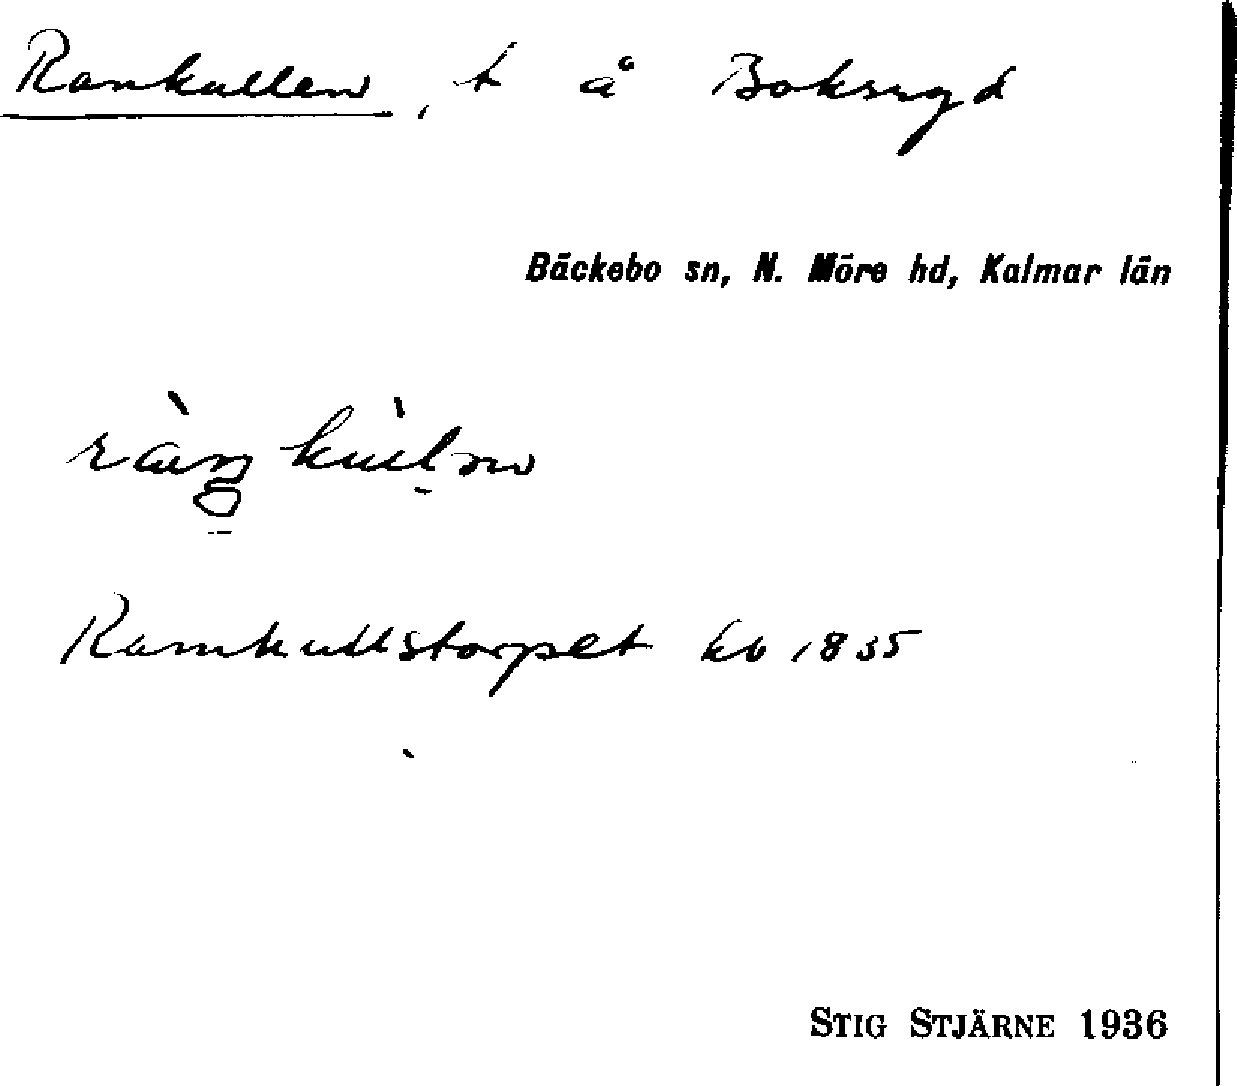 Rankullen, t å Boksryd
Bäckebo sn, N. Möre hd, Kalmar län
Ramkullstorpet kb 1835
STIG STJÄRNE 1936